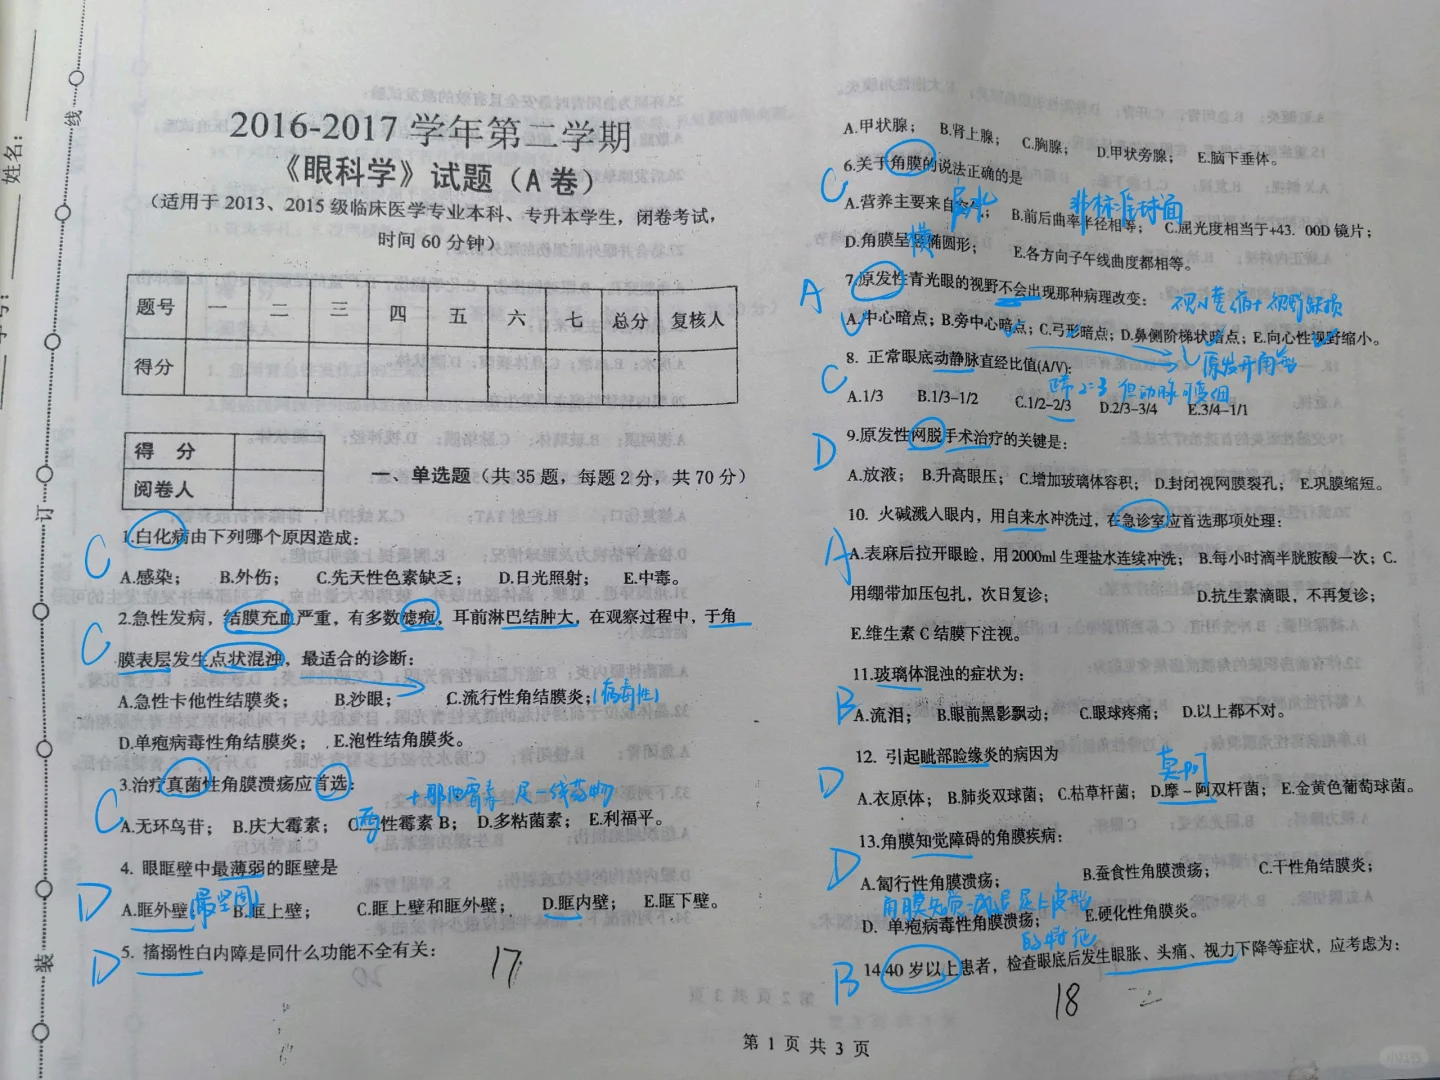 姓名：
学号：
线
订
装
2016-2017 学年第二学期
《眼科学》试题（A 卷）
（适用于 2013、2015 级临床医学专业本科、专升本学生，闭卷考试，
时间 60 分钟）
题号 一 二 三 四 五 六 七 总分 复核人
得分
得 分
阅卷人
一、单选题（共 35 题，每题 2 分，共 70 分）
C 1.白化病由下列哪个原因造成：
A.感染； B.外伤； C.先天性色素缺乏； D.日光照射； E.中毒。
C 2.急性发病，结膜充血严重，有多数滤疱，耳前淋巴结肿大，在观察过程中，于角
膜表层发生点状混浊，最适合的诊断：
A.急性卡他性结膜炎； B.沙眼； C.流行性角结膜炎；（病毒性）
D.单疱病毒性角结膜炎； E.泡性结角膜炎。
C 3.治疗真菌性角膜溃疡应首选：
+那他霉素 是一线药物
A.无环鸟苷； B.庆大霉素； C.两性霉素 B； D.多粘菌素； E.利福平。
D 4. 眼眶壁中最薄弱的眶壁是
A.眶外壁（最坚固） B.眶上壁； C.眶上壁和眶外壁； D.眶内壁； E.眶下壁。
D 5. 搐搦性白内障是同什么功能不全有关：
17
A.甲状腺； B.肾上腺； C.胸腺； D.甲状旁腺； E.脑下垂体。
C 6.关于角膜的说法正确的是
房水 非标准球面
A.营养主要来自 B.前后曲率半径相等； C.屈光度相当于+43．00D 镜片；
横
D.角膜呈 椭圆形； E.各方向子午线曲度都相等。
A 7.原发性青光眼的视野不会出现那种病理改变：
A.中心暗点；B.旁中心暗点；C.弓形暗点；D.鼻侧阶梯状暗点；E.向心性视野缩小。
原发开角型
C 8. 正常眼底动静脉直经比值(A/V):
A.1/3 B.1/3-1/2 C.1/2-2/3 D.2/3-3/4 E.3/4-1/1
D 9.原发性网脱手术治疗的关键是：
A.放液； B.升高眼压； C.增加玻璃体容积； D.封闭视网膜裂孔； E.巩膜缩短。
A 10. 火碱溅人眼内，用自来水冲洗过，在急诊室应首选那项处理：
A.表麻后拉开眼睑，用 2000ml 生理盐水连续冲洗； B.每小时滴半胱胺酸一次；C.
用绷带加压包扎，次日复诊； D.抗生素滴眼，不再复诊；
E.维生素 C 结膜下注视。
B 11.玻璃体混浊的症状为：
A.流泪； B.眼前黑影飘动； C.眼球疼痛； D.以上都不对。
D 12. 引起眦部睑缘炎的病因为
莫
A.衣原体； B.肺炎双球菌； C.枯草杆菌； D.摩－阿双杆菌； E.金黄色葡萄球菌。
D 13.角膜知觉障碍的角膜疾病：
A.匐行性角膜溃疡； B.蚕食性角膜溃疡； C.干性角结膜炎；
角膜知觉减退是上皮型
的特征
D. 单疱病毒性角膜溃疡； E.硬化性角膜炎。
B 14.40 岁以上患者，检查眼底后发生眼胀、头痛、视力下降等症状，应考虑为：
18
第 1 页 共 3 页